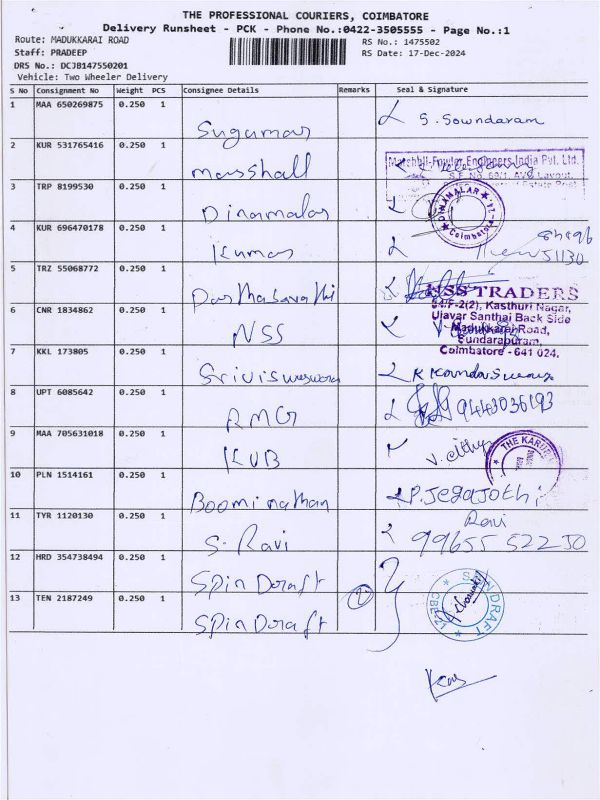 THE PROFESSIONAL COURIERS, COIMBATORE
Delivery Runsheet - PCK - Phone No.:0422-3505555 - Page No.:1
Route: MADUKKARAI ROAD
RS No.: 1475502
Staff: PRADEEP
RS Date: 17-Dec-2024
DRS No.: DCJB147550201
Vehicle: Two Wheeler Delivery
S No Consignment No Weight PCS Consignee Details Remarks Seal & Signature
1 MAA 650269875 0.250 1 Sugumar S. Sowndaram
2 KUR 531765416 0.250 1 Marshall Engineers India Pvt. Ltd.
3 TRP 8199530 0.250 1 Dinamalar DINAMALAR Coimbatore
4 KUR 696470178 0.250 1 Kumar 51130
5 TRZ 55068772 0.250 1 Parthasarathi
6 CNR 1834862 0.250 1 NSS
NSS TRADERS
54/F-2(2), Kasthuri Nagar,
Ulavar Santhai Back Side
Madukkarai Road,
Sundarapuram,
Coimbatore - 641 024.
7 KKL 173805 0.250 1
8 UPT 6085642 0.250 1 RMG 9443036193
9 MAA 705631018 0.250 1 KVB THE KARUR
10 PLN 1514161 0.250 1 Boominathan P. Jegajothi
11 TYR 1120130 0.250 1 S. Ravi Ravi
99655 52230
12 HRD 354738494 0.250 1 Spin Doraft
13 TEN 2187249 0.250 1 Spin Doraft 2